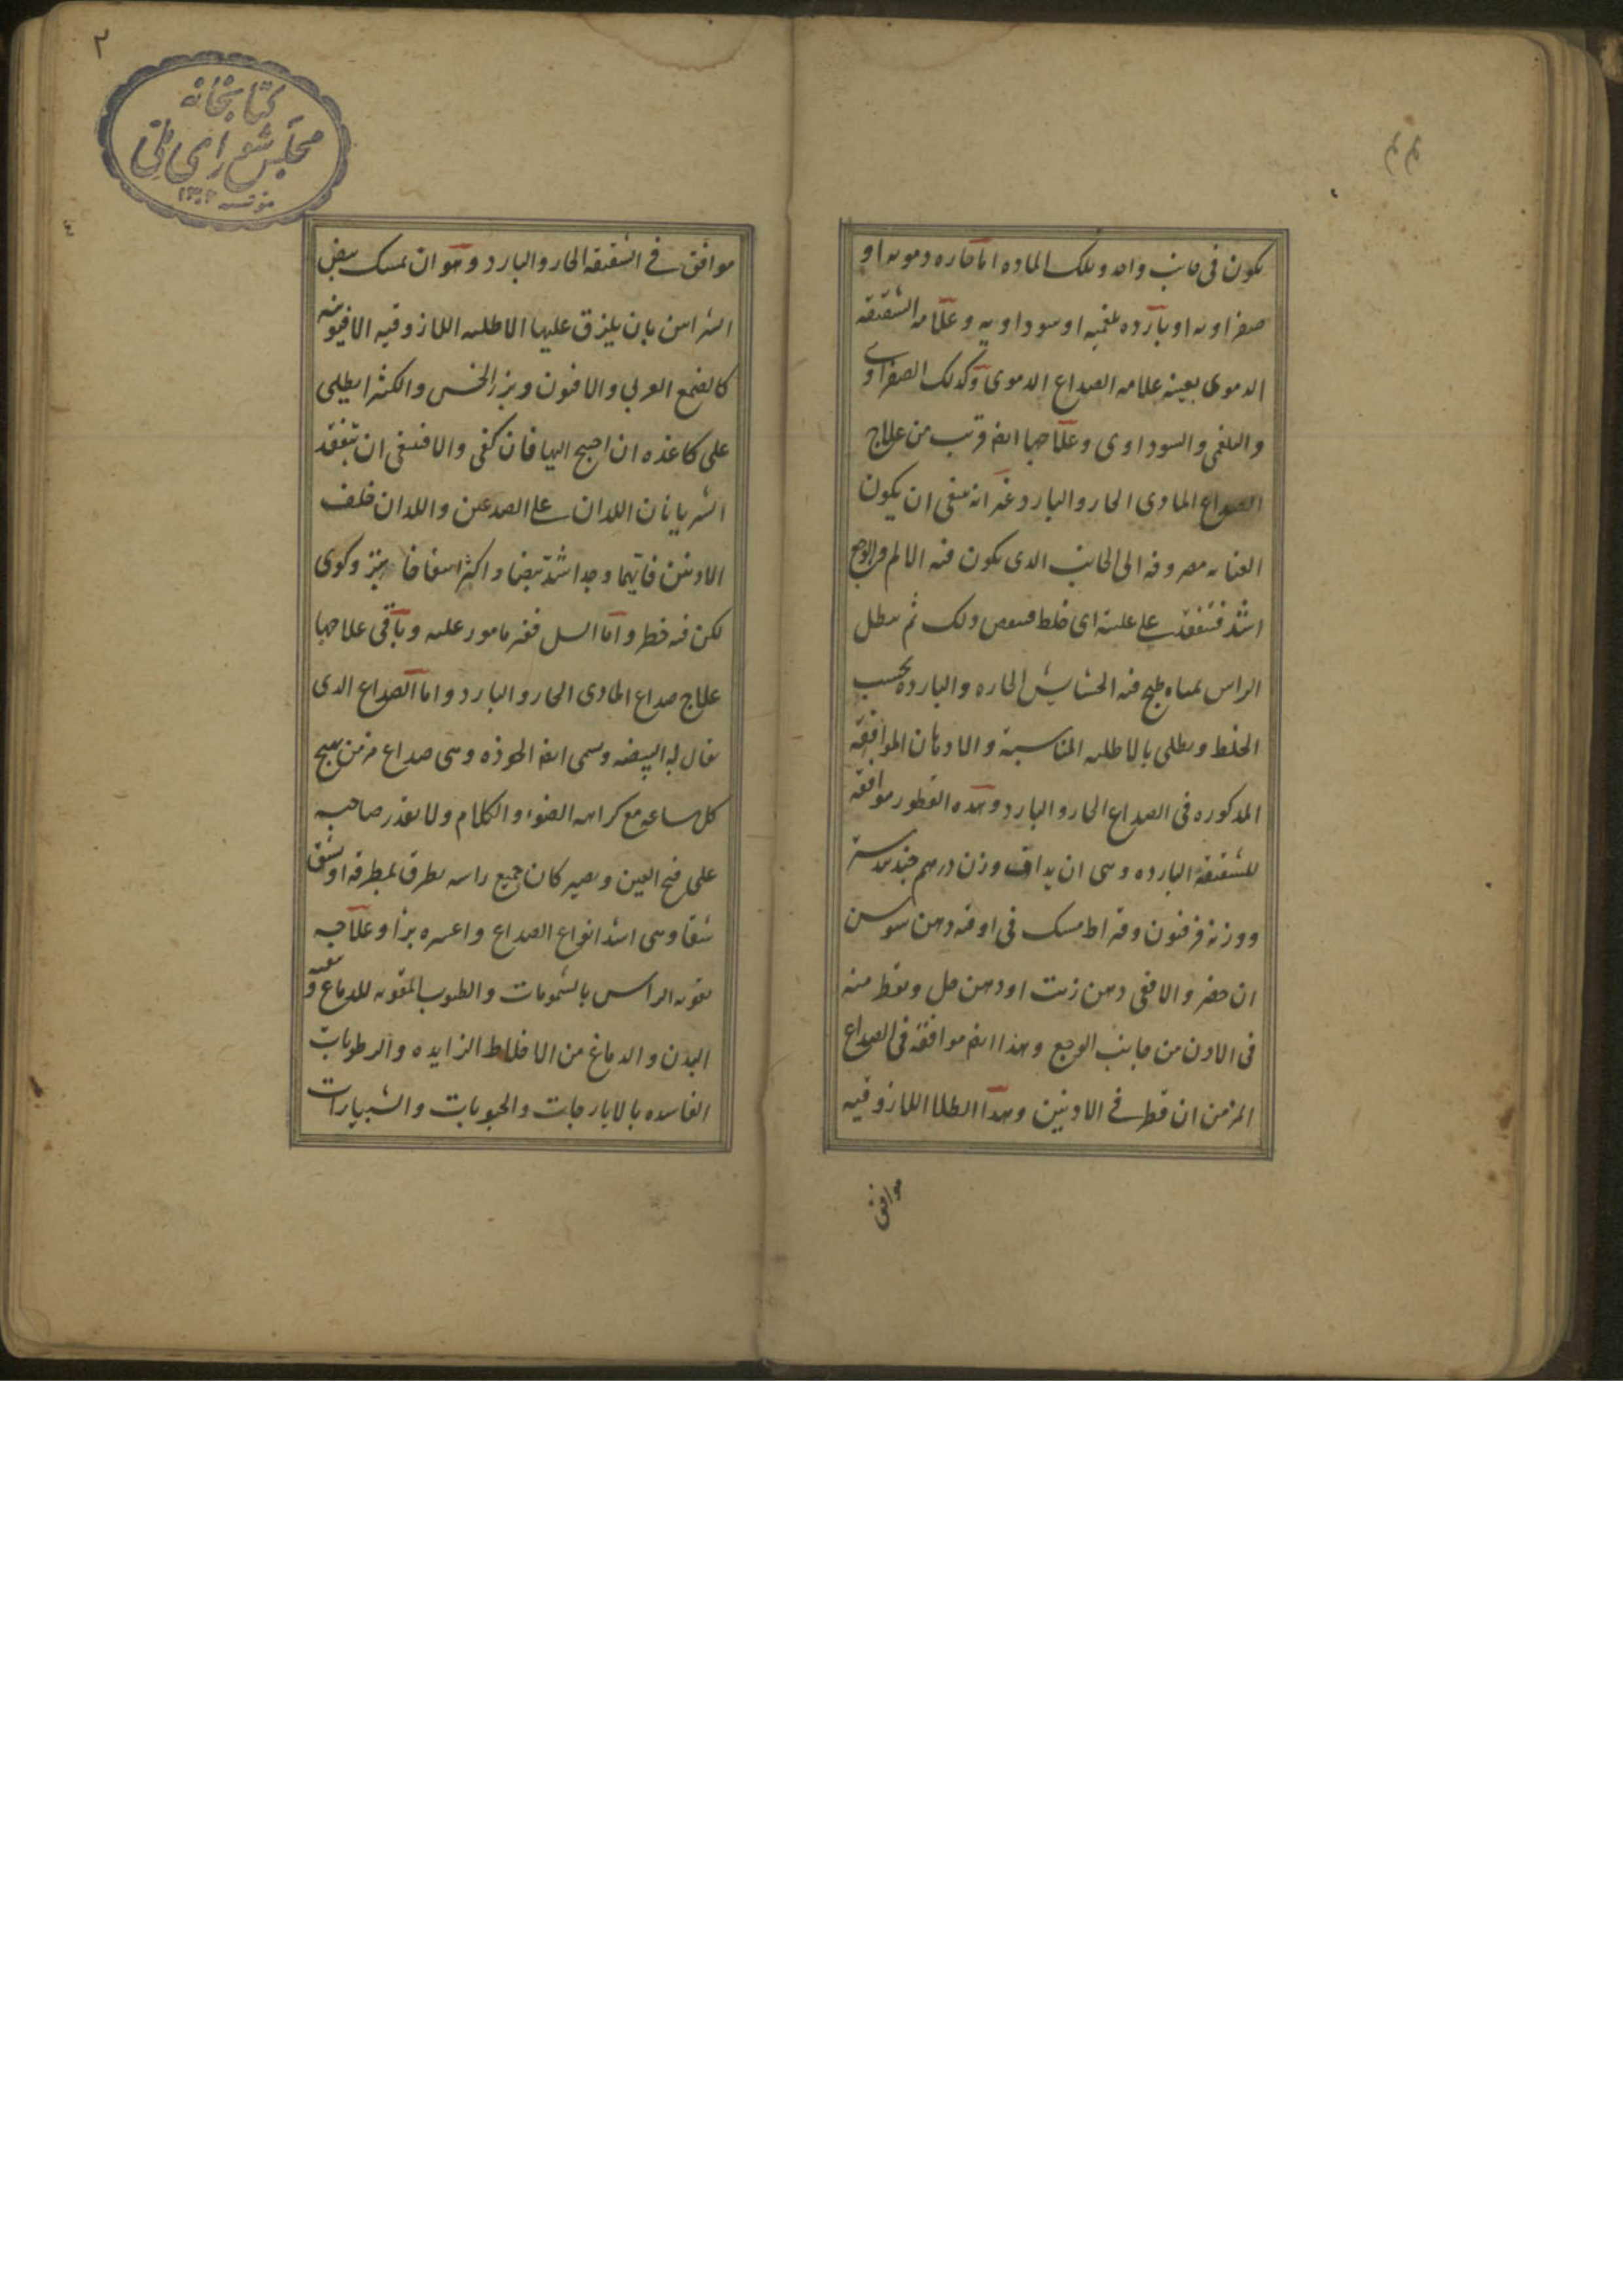 يكون فى جانب واحد وتلك الماده اما حاره دمويه او
صفراويه او بارده بلغميه او سوداويه وعلامه الشقيقه
الدموى بعينه علامه الصداع الدموى وكذلك الصفراوى
والبلغمى والسوداوى وعلاجها ايضا قريب من علاج
الصداع المادى الحار والبارد غير انه ينبغى ان يكون
العنايه مصروفه الى الجانب الدى يكون فيه الالم والوجع
اشد فتفقد على علبة اى خلط فينقص ذلك ثم ينطل
الراس بمياه طبخ فيه الحشايش الحاره والبارده بحسب
الخلط ويطلى بالاطليه المناسبة والادهان الموافقة
المذكوره فى الصداع الحار والبارد وهذه القطور موافقه
للشقيقة البارده وهى ان يداف وزن درهم جندبيدستر
ووزنه فرفيون وقيراط مسك فى اوقيه دهن سوسن
ان حضر والا ففى دهن زيت او دهن حل ويقطر منه
فى الاذن من جانب الوجع وهذا ايضا موافقة فى الصداع
المزمن ان قطر فى الاذنين وهذا الطلا اللازوقيه
موافق
٢
كتابخانه
مجلس شوراى ملى
مؤسسه ١٣٠٢
٤
موافق فى الشقيقه الحار والبارد وهو ان تمسك بعض
الشرايين بان يلزق عليها الاطليه اللازوقيه الافيونيه
كالصمغ العربى والافيون وبزر الخس والكثيرا يطلى
على كاغذه ان احتيج اليها فان كفى والا فينبغى ان يتفقد
الشريانان اللذان على الصدغين واللذان خلف
الاذنين فايهما وجد اشد نبضا واكثر انتفاخا بتر وكوى
لكن فيه خطر واما السل فغير مامور عليه وباقى علاجها
علاج صداع المادى الحار والبارد واما الصداع الذى
يقال له البيضه ويسمى ايضا الخوذه وهى صداع مزمن يهيج
كل ساعه مع كراهه الضوء والكلام ولا يقدر صاحبه
على فتح العين ويصير كان جميع راسه يطرق بمطرقه او يشق
شقا وهى اشد انواع الصداع واعسره برأ وعلاجه
تقويه الراس بالشمومات والطيوب المقويه للدماغ وتنقيه
البدن والدماغ من الاخلاط الزايده والرطوبات
الفاسده بالايارجات والحبوبات والشبيارات